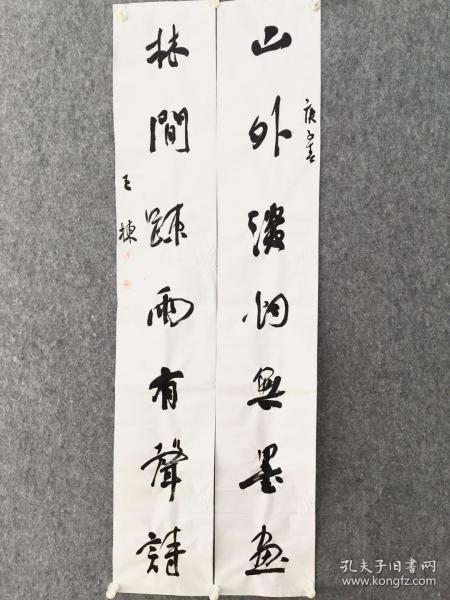 山外澹烟無墨畫
庚子春
林間踈雨有聲詩
王棟
孔夫子旧书网
www.kongfz.com